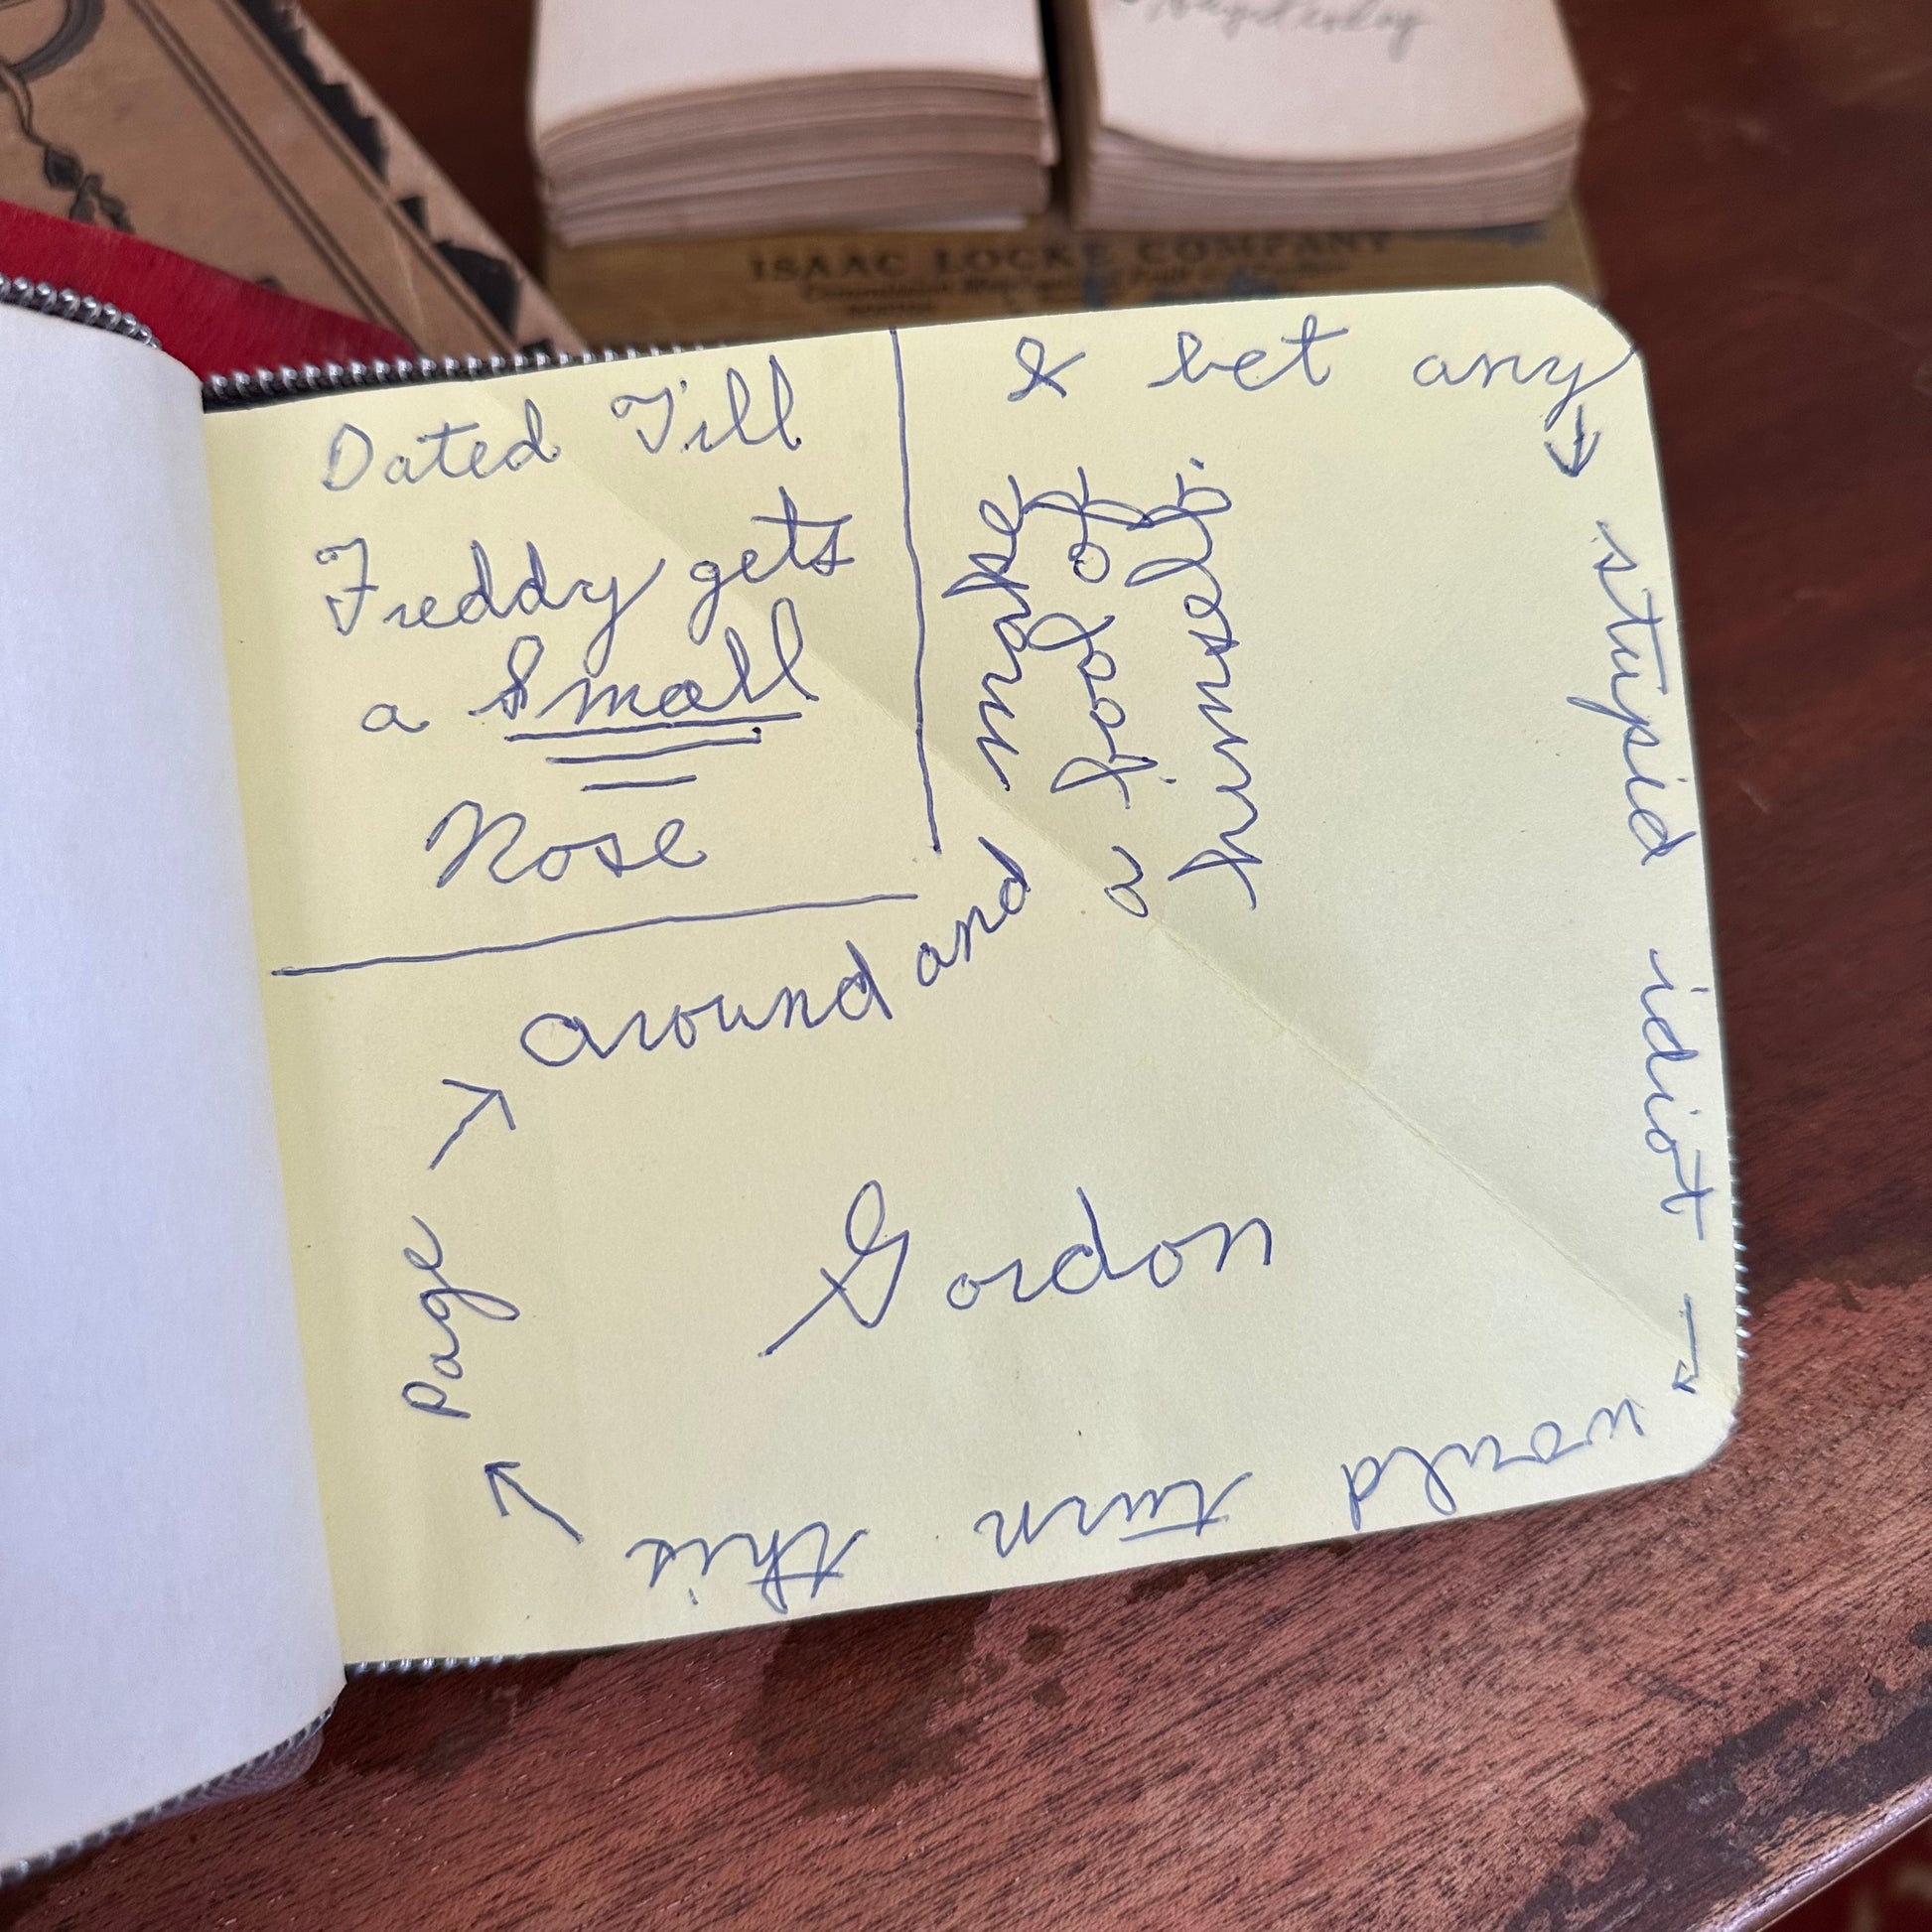 Dated Till
Freddy gets
a Small
Nose
I bet any
stupid idiot
would turn this
page
around and
make
a fool of
himself
Gordon
ISAAC LOCKE COMPANY